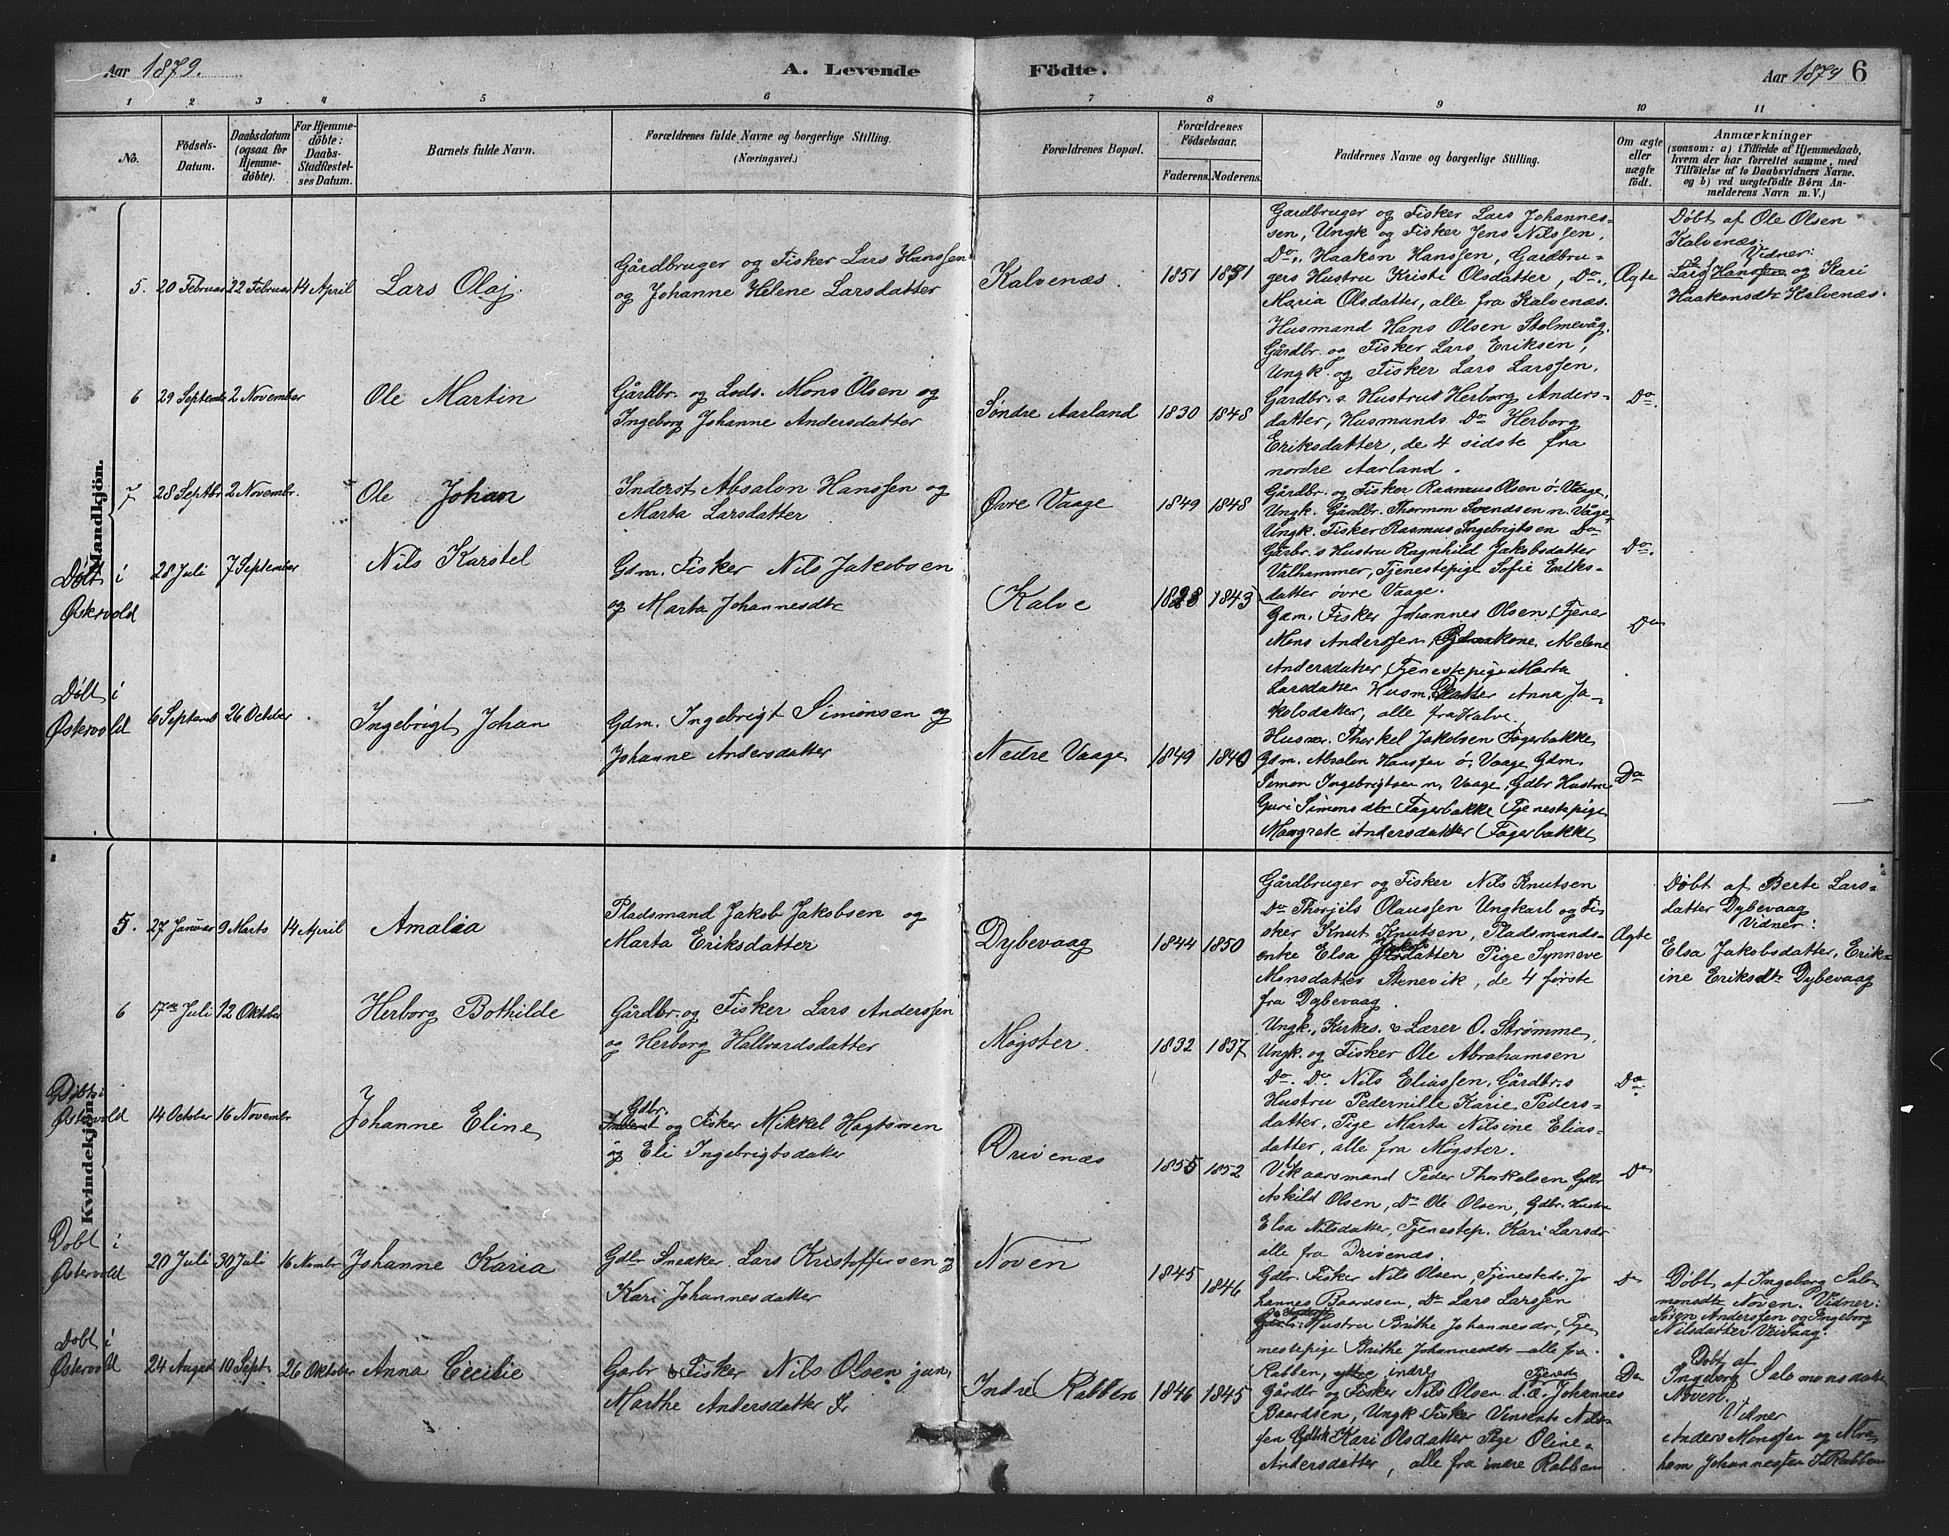 Aar 1879.
A. Levende Födte.
Aar 1879
6
1 2 3 4 5 6 7 8 9 10 11
No.
Födsels-
Datum.
Daabsdatum
(ogsaa for
Hjemme-
döbte).
For Hjemme-
döbte:
Daabs-
Stadfæstel-
ses Datum.
Barnets fulde Navn.
Forældrenes fulde Navne og borgerlige Stilling.
(Næringsvei.)
Forældrenes Bopæl.
Forældrenes
Födselsaar.
Faderens. Moderens.
Faddernes Navne og borgerlige Stilling.
Om ægte
eller
uægte
födt.
Anmærkninger
(saasom: a) i Tilfælde af Hjemmedaab,
hvem der har forrettet samme, med
Tilföielse af to Daabsvidners Navne.
og b) ved uægtefödte Börn An-
melderens Navn m. V.)
Mandkjön.
5. 20 Februar 22 Februar 14 April
Lars Olaj
Gårdbruger og Fisker Lars Hanssen
og Johanne Helene Larsdatter
Kalvenæs.
1851 1851
Gardbruger og Fisker Lars Johannes-
sen, Ungk og Fisker Jens Nilssen,
Do., Haakon Hanssen, Gardbru-
gers Hustru Kristi Olsdatter, Do.,
Maria Olsdatter, alle fra Kalvenæs.
Ægte
Døbt af Ole Olsen
Kalvenæs.
Vidner:
Lars Hanssen og Kari
Haakonsdtr Kalvenæs.
6 29 Septemb 2 November
Ole Martin
Gårdbr. og Lods. Mons Olsen og
Ingeborg Johanne Andersdatter
Søndre Aarland
1830 1848
Husmand Hans Olsen Stolmevåg.
Gårdbr. og Fisker Lars Eriksen,
Ungk. og Fisker Lars Larssen.
Gardbr. s. Hustrus Herborg Anders-
datter, Husmands Do Herborg
Eriksdatter, de 4 sidste fra
nordre Aarland.
Do.
7 28 Septbr 2 Novembr.
Ole Johan
Inderst Absalon Hanssen og
Marta Larsdatter
Øvre Vaage
1849 1848
Gårdbr. og Fisker Rasmus Olsen ö. Vaage,
Ungk. Gårdbr. Thormon Svendsen n. Våge,
Ungk. Fisker Rasmus Ingebrigtsen Do
Gårbr. s Hustru Ragnhild Jakobsdatter
Valhammer, Tjenestepige Sofie Eriks-
datter øvre Vaage.
Do.
Døbt i
Østervold
28 Juli 7 September
Nils Karstel
Gdm. Fisker Nils Jakobsen
og Marta Johannesdtr
Kalve
1828 1843
Gdm. Fisker Johannes Olsen, Tjener
Mons Anderssen, kone, Melene
Andersdatter, Tjenestepige Marta
Larsdatter Husm. Datter Anna Ja-
kobsdatter, alle fra Kalve.
Do
Døbt i
Østervold
6 Septemb 26 October
Ingebrigt Johan
Gdm. Ingebrigt Simonsen og
Johanne Andersdatter
Nedre Vaage
1849 1840
Husm. Thorkel Jakobsen Fagerbakke
Gdm. Absalon Hanssen ö. Vaage, Gdm.
Simon Ingebrigtsen n. Vaage, Gdbr Hustru
Guri Simonsdtr Fagerbakke Tjenestepige
Margrete Andersdatter Fagerbakke
Do
Kvindekjön.
5. 27 Januar 9 Marts 14 April
Amalia
Pladsmand Jakob Jakobsen og
Marta Eriksdatter
Dybevaag
1844 1850
Gårdbruger og Fisker Nils Knutsen
Do Thorjels Olaussen Ungkarl og Fi-
sker Knut Knutsen, Pladsmands-
enke Elsa Jakobsdatter Pige Synneve
Monsdatter Stenevik, de 4 første
fra Dybevaag.
Ægte
Døbt af Berte Lars-
datter Dybevaag
Vidner:
Elsa Jakobsdatter, Erik-
ine Eriksdtr Dybevaag
6 17de Juli 12 Oktober
Herborg Bothilde
Gårdbr. og Fisker Lars Anderssen
og Herborg Hallvardsdatter
Møgster.
1832 1837
Ungk., Kirkes. & Lærer O. Strømme,
Ungk. og Fisker Ole Abrahamsen
Do. Do. Nils Eliassen, Gårdbr.s
Hustru Pedernille Karie, Peders-
datter, Pige Marta Nilsine Elias-
datter, alle fra Møgster.
Do.
Døbt i
Østervold
14 October 16 Novembr
Johanne Eline
Gdbr.
Inderst og Fisker Mikkel Hagtsen
og Eli Ingebrigtsdatter
Drivenæs
1855 1852
Vikaarsmand Peder Thorkelsen, Gdbr
Askild Olsen, Do Ole Olsen, Gdbr. Hustru
Elsa Nilsdatter, Tjenestep. Kari Larsdr
alle fra Drivenæs.
Do
Døbt i
Østervold
20 Juli 30 Juli 16 Novmbr
Johanne Karia
Gdbr Snedker Lars Kristoffersen og
Kari Johannesdatter
Noven
1845 1846
Gdbr. Fisker Nils Olsen, Tjenestedr. Jo
hannes Baardsen, Do Lars Larssen
Hustru Brithe Johannesdr, Tje
nestepige Brithe Johannesdtr alle fra.
Rabben, ytre, indre
Do
Døbt af Ingeborg Salo
monsdtr Noven. Vidner:
Sören Anderssen og Ingeborg
Nilsdatter Vestvaag.
Døbt i
Østervold
24 August 10 Sept. 26 Oktober
Anna Cecilie
Garbr & Fisker Nils Olsen jun,
Marthe Andersdatter
Indre Rabben
1846 1845
Gårdbr og Fisker Nils Olsen d.æ. Johannes
Baardsen, Ungk Fisker Vinsents Nils-
sen Gdbk Kari Olsdatter Pige Oline
Andersdatter, alle fra indre Rabben
Do
Døbt af
Ingeborg Salomonsdatr
Noven.
Vidner
Anders Monssen og Abra-
ham Johannessen I. Rabben